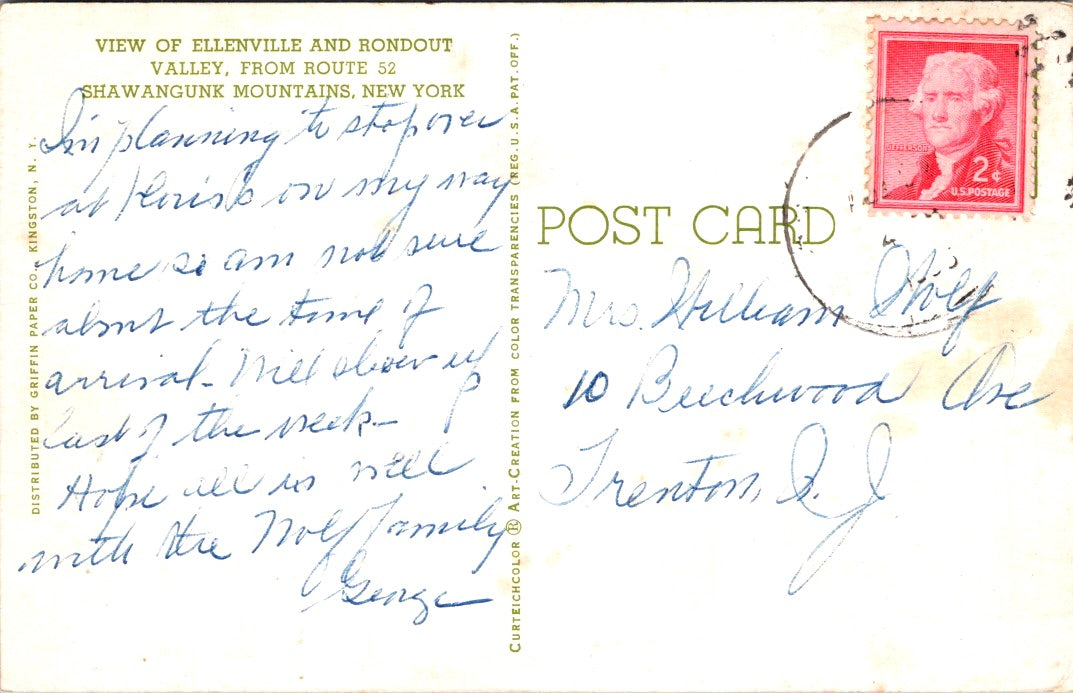 VIEW OF ELLENVILLE AND RONDOUT
VALLEY, FROM ROUTE 52
SHAWANGUNK MOUNTAINS, NEW YORK
I'm planning to stop over
at on my way
home so am not sure
about the time of
arrival. Will show up
last of the week-
Hope all is well
with the Wolf family
George
DISTRIBUTED BY GRIFFIN PAPER CO., KINGSTON, N. Y.
CURTEICHCOLOR ® ART-CREATION FROM COLOR TRANSPARENCIES (REG. U.S.A. PAT. OFF.)
POST CARD
JEFFERSON
2¢
U.S. POSTAGE
Mrs. William Wolf
10 Beechwood Ave
Trenton, N. J